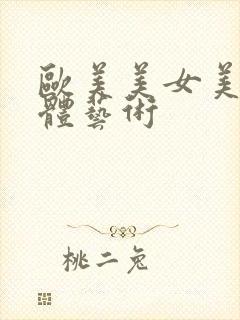 歐美美女美
體藝術
桃二兔